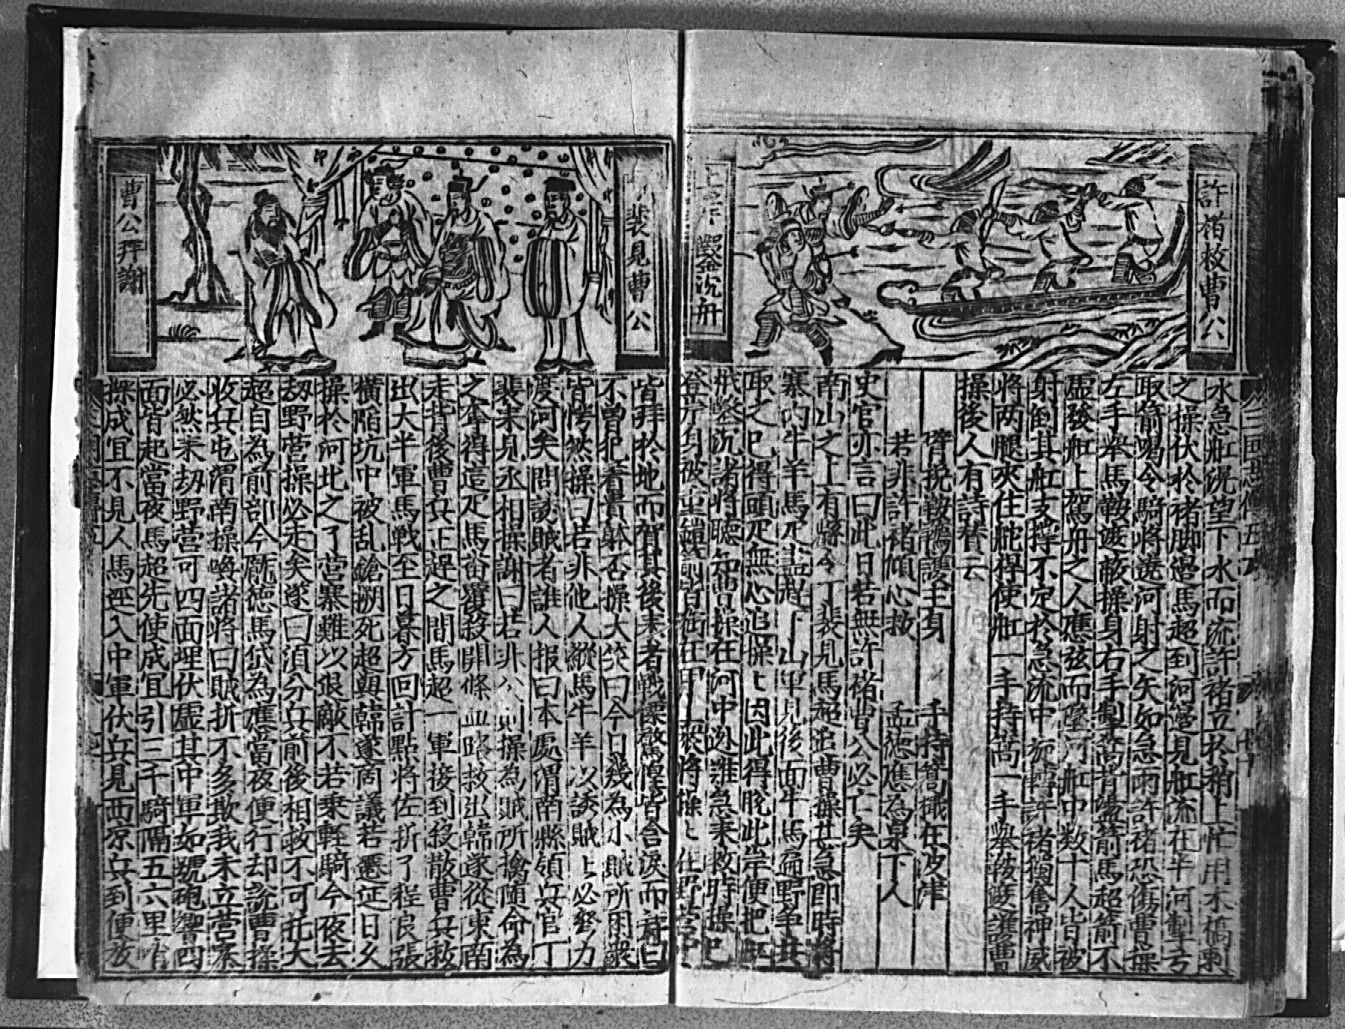 許褚救曹公
水急舡洸望下水而流許褚立於稍上忙用木槁刺
之操伏於褚脚邊馬超到河邊見舡流在半河掣弓
取箭喝令騎將遶河射之矢如急雨許褚恐傷曹操
左手舉馬鞍遮蔽操身右手掣篙背邊箭馬超箭不
虛發舡上駕舟之人應弦而墜河舡中数十人皆被
射倒其舡支撑不定於急流中旋轉許褚獨奮神威
將两腿夾住舵桿使舡一手持篙一手舉鞍遮護曹
操後人有詩賛云
臂挽鞍韉護主身 手持篙撼在波津
若非許褚傾心救 孟德應為泉下人
史官亦言曰此日若無許褚曹公必亡矣
南山之上有縣令丁裴見馬超追曹操甚急即時將
寨内牛羊馬疋盡趕下山軍見後面牛馬遍野争共
取之已得頭疋無心追操上因此得脫此岸便把舡
筏鑿沉諸將聽知曹操在河中逃難急来救時操已
登岸身被重鎧
沉舟
裴見曹公
曹公拜謝
皆拜於地而賀其後来者戰慄驚惶皆含淚而訴曰
不曾犯着貴躰否操大笑曰今日幾為小賊所困衆
皆愕然操曰若非他人縱馬牛羊以誘賊上必努力
渡河矣問誘賊者誰人报曰本處渭南縣領兵官丁
裴来見丞相操謝曰若非公則操為賊所擒随命為
之本得這疋馬奮覆殺開條血路救出韓遂從東南
走背後曹兵正趕之間馬超一軍後到殺散曹兵救
出大半軍馬戰至日暮方回計點將佐折了程良張
橫陷坑中被乱鎗搠死超與韓遂商議若遷延日久
操於河北之了營寨難以退敵不若乘軽騎今夜去
刼野營操必走矣遂曰須分兵前後相救不可托大
超自為前部令龐德馬岱為應當夜便行却説曹操
收兵屯渭南操喚諸將曰賊折不多欺我未立營寨
必然来刼野營可四面埋伏虛其中軍如號砲響四
面皆起當夜馬超先使成宜引三千騎隔五六里哨
探成宜不見人馬逕入中軍伏兵見西凉兵到便放